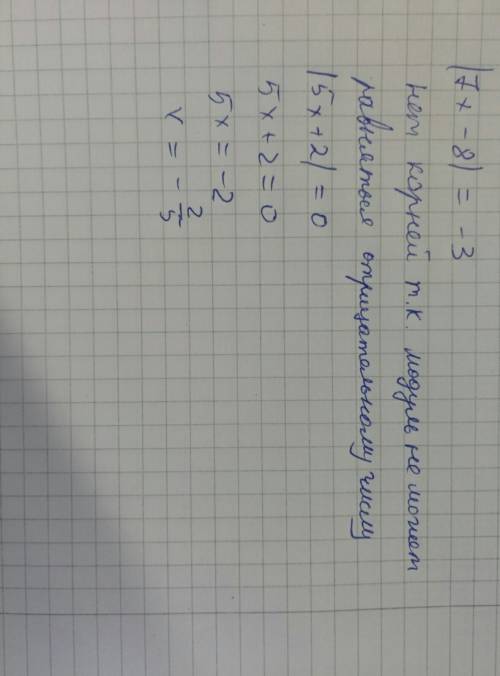 |7x - 8| = -3
нет корней т.к. модуль не может
равняться отрицательному числу
|5x + 2| = 0
5x + 2 = 0
5x = -2
x = - 2/5